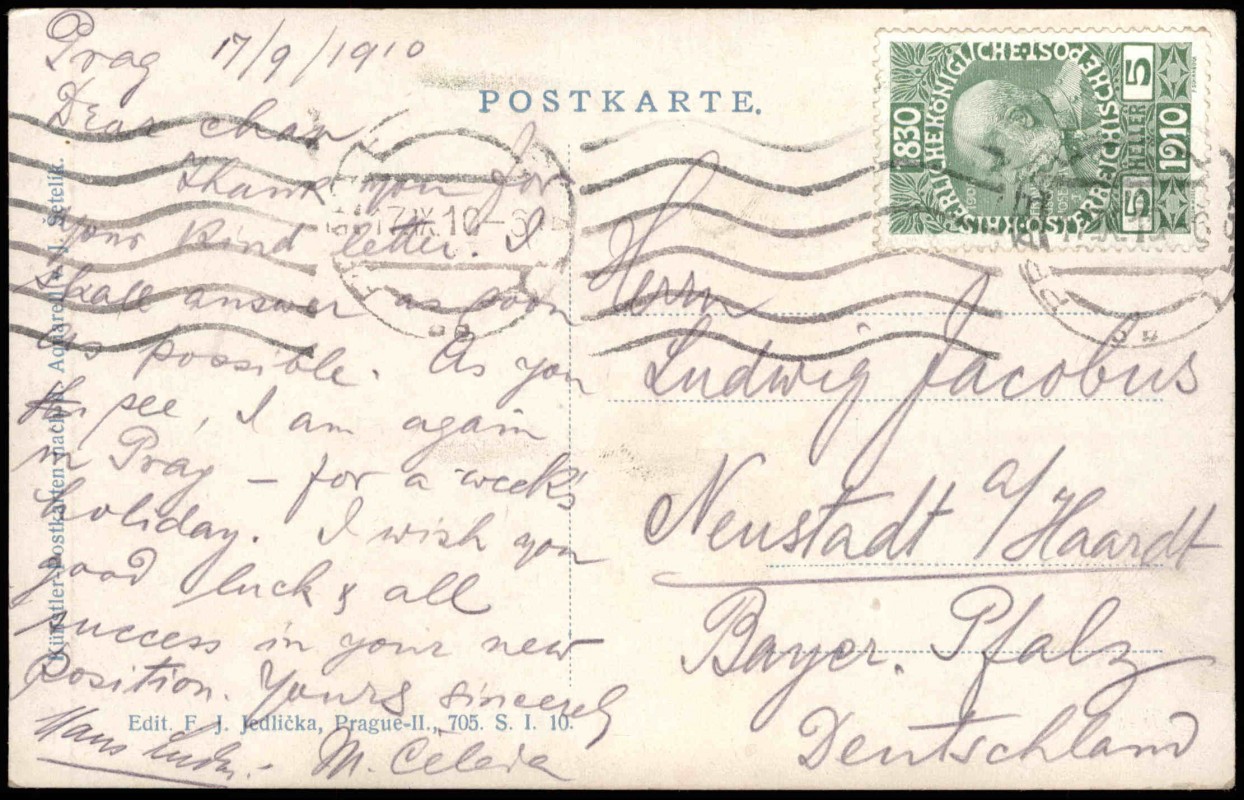 Prag 17/9/1910
Dear chap
Thank you for
your kind letter. I
shall answer as soon
as possible. As you
see, I am again
in Prag – for a week's
holiday. I wish you
good luck & all
success in your new
position. Yours sincerely
Hans
M.
POSTKARTE.
Künstler-Postkarten nach d. Aquarell v. J. Šetelík.
Edit. F. J. Jedlička, Prague-II., 705. S. I. 10.
KAISERLICHE KÖNIGLICHE ÖSTERREICHISCHE POST
1830
1910
5 HELLER 5
17 IX 10
Herrn
Ludwig Jacobus
Neustadt a/Haardt
Bayer. Pfalz
Deutschland